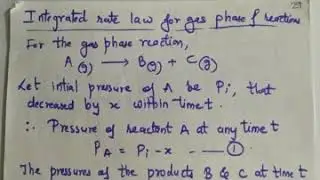 Integrated rate law for gas phase reactions
For the gas phase reaction,
A(g) ⟶ B(g) + C(g)
Let intial pressure of A be Pi, that
decreased by x within time t.
∴ Pressure of reactant A at any time t
PA = Pi - x -- ①
The pressures of the products B & C at time t